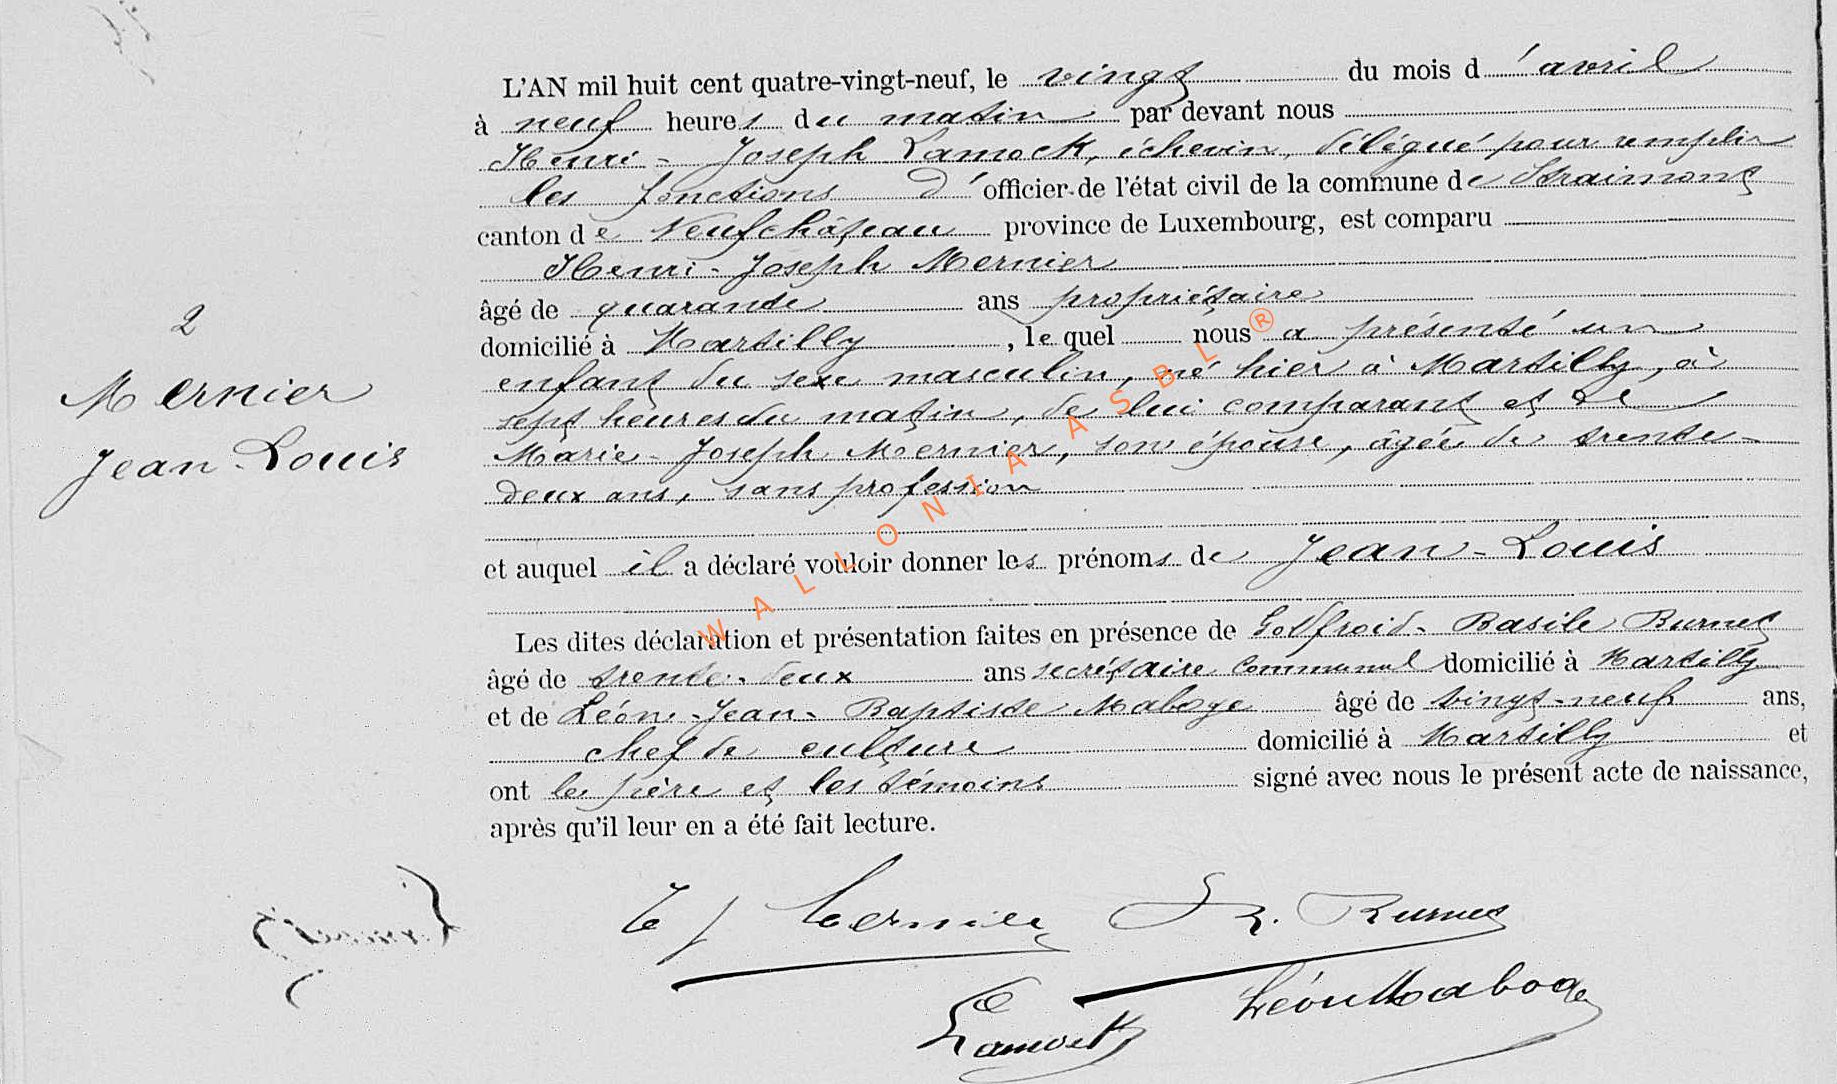 L'AN mil huit cent quatre-vingt-neuf, le vingt du mois d'avril
à neuf heures du matin par devant nous
Henri-Joseph Lamock, échevin, délégué pour remplir
les fonctions d'officier de l'état civil de la commune de Straimont
canton de Neufchâteau province de Luxembourg, est comparu
Henri-Joseph Mernier
âgé de quarante ans propriétaire
domicilié à Martilly, le quel nous a présenté un
enfant du sexe masculin, né hier à Martilly, à
sept heures du matin, de lui comparant et de
Marie-Joseph Mernier, son épouse, âgée de trente-
deux ans, sans profession
et auquel il a déclaré vouloir donner les prénoms de Jean-Louis
Les dites déclaration et présentation faites en présence de Godfroid-Basile Burnet
âgé de trente-deux ans secrétaire communal domicilié à Martilly
et de Léon-Jean-Baptiste Maboge âgé de vingt-neuf ans,
chef de culture domicilié à Martilly et
ont le père et les témoins signé avec nous le présent acte de naissance,
après qu'il leur en a été fait lecture.
2
Mernier
Jean-Louis
WALLONIA ASBL®
H J Mernier
B. Burnet
Lamock
Léon Maboge